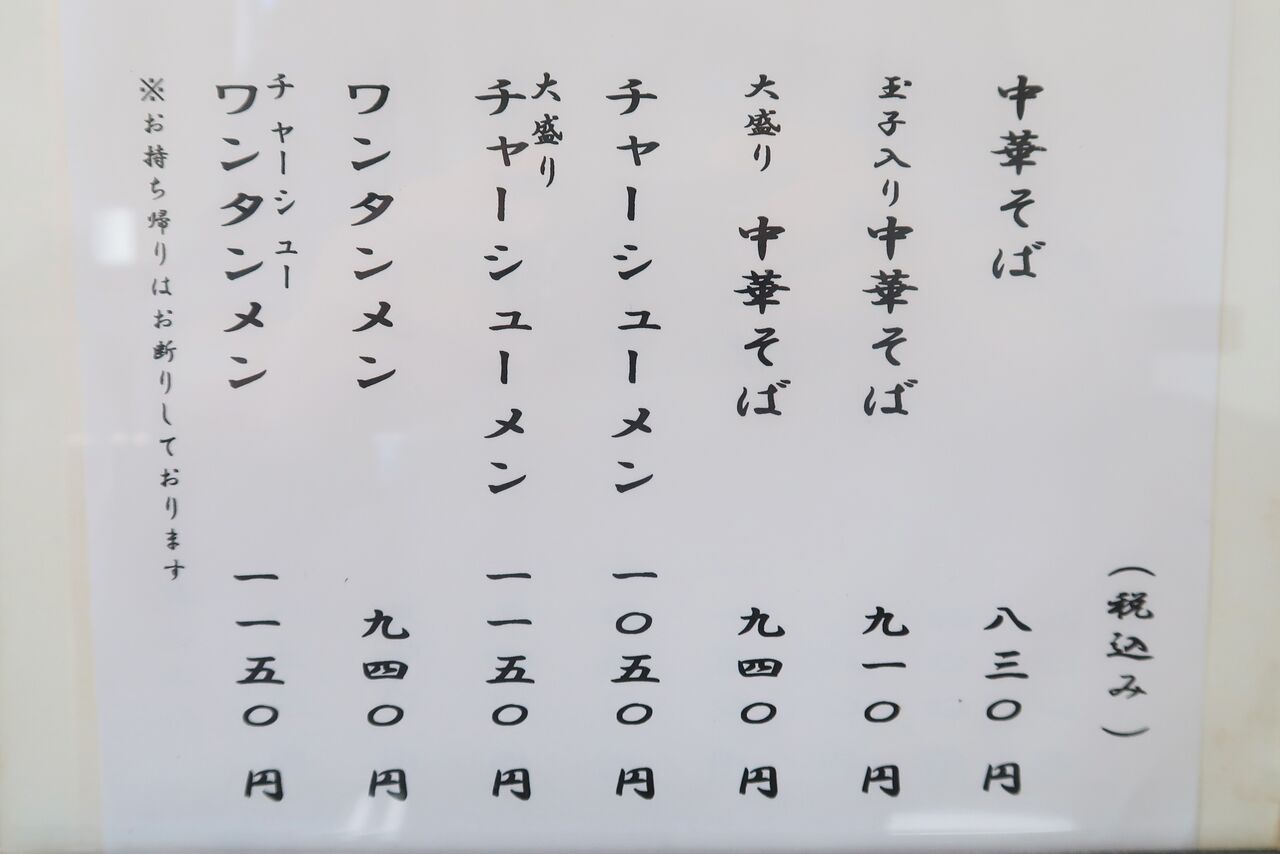 （税込み）
中華そば 八三〇円
玉子入り中華そば 九一〇円
大盛り 中華そば 九四〇円
チャーシューメン 一〇五〇円
大盛り チャーシューメン 一一五〇円
ワンタンメン 九四〇円
チャーシュー ワンタンメン 一一五〇円
※お持ち帰りはお断りしております